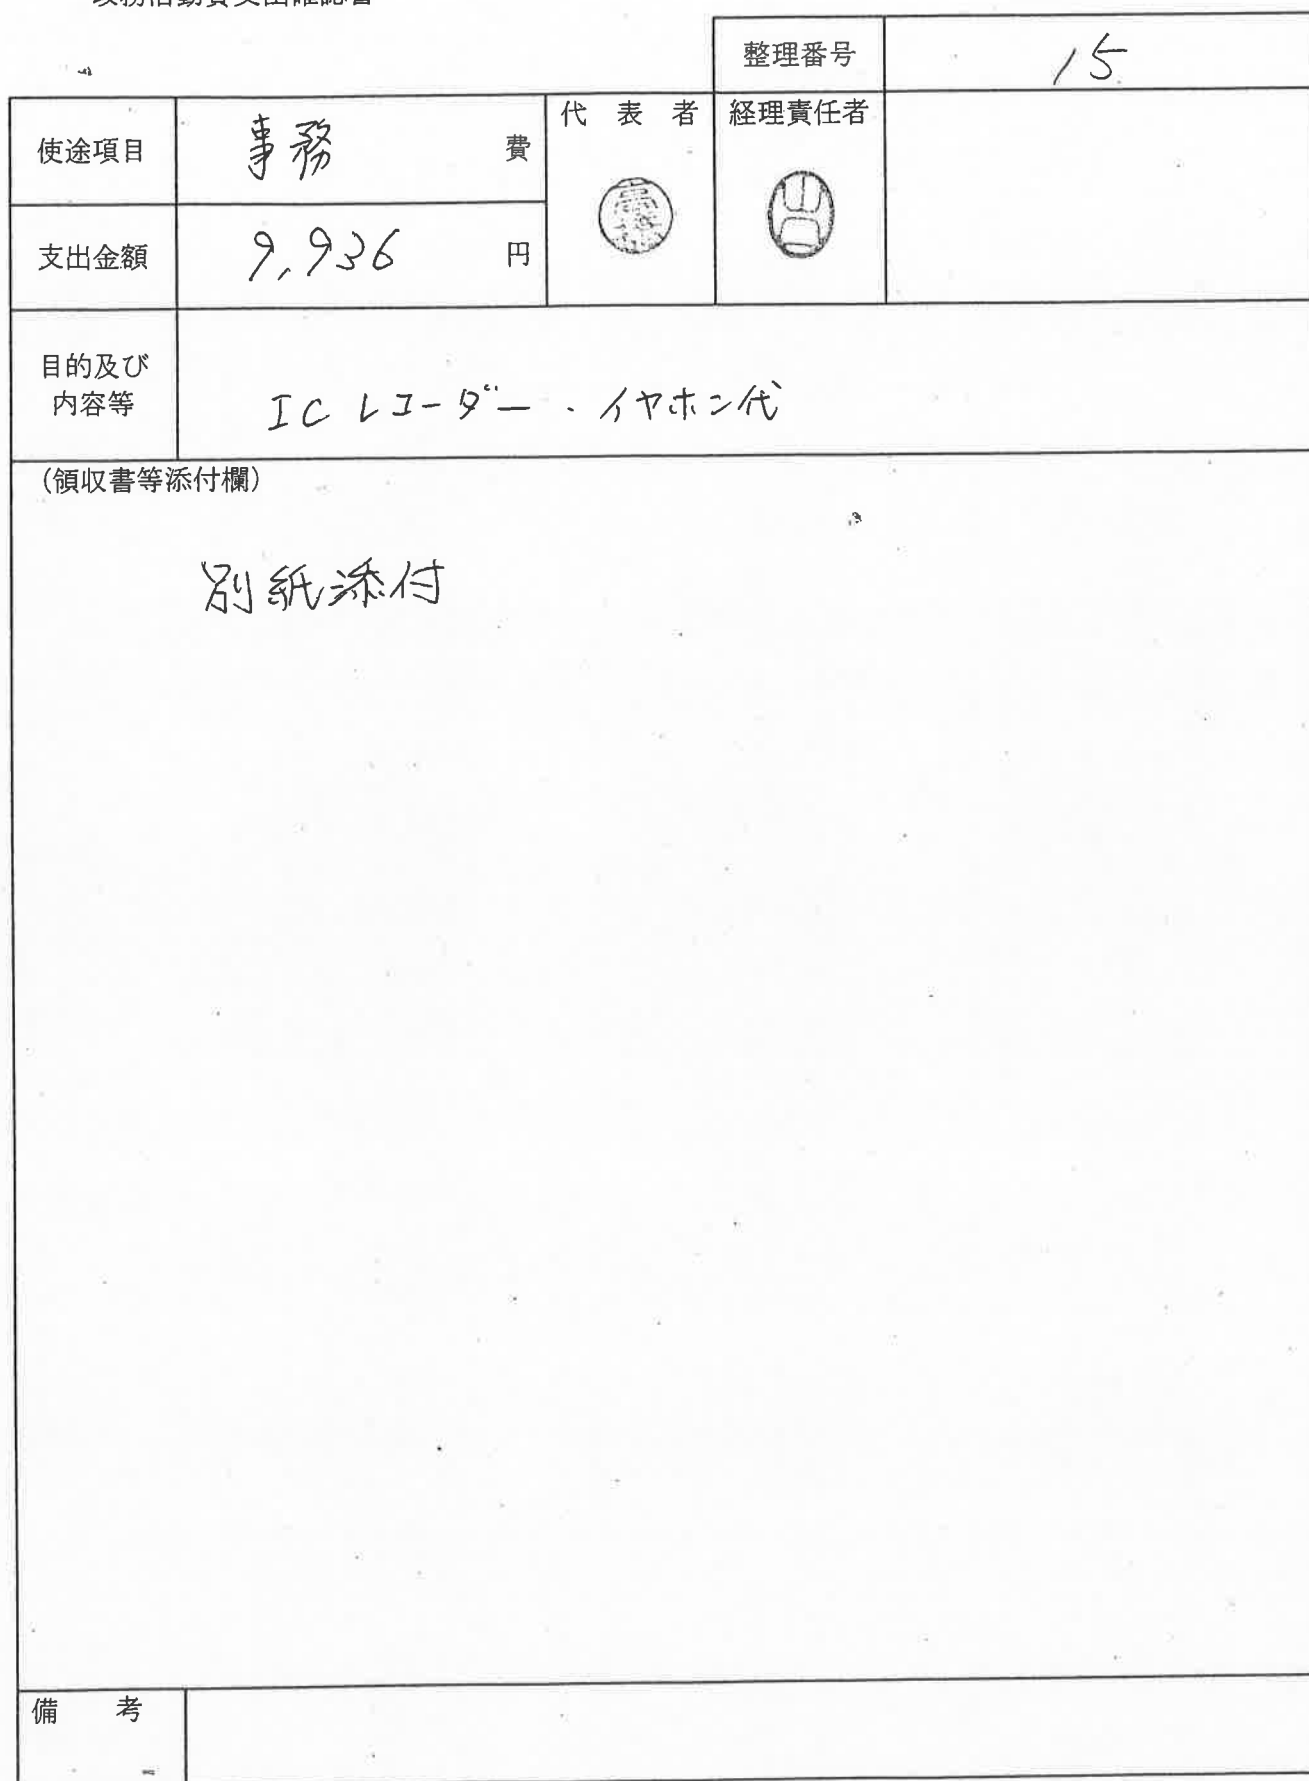 整理番号 15
使途項目 事務 費 代表者 経理責任者
支出金額 9,936 円
目的及び
内容等
ICレコーダー・イヤホン代
(領収書等添付欄)
別紙添付
備考